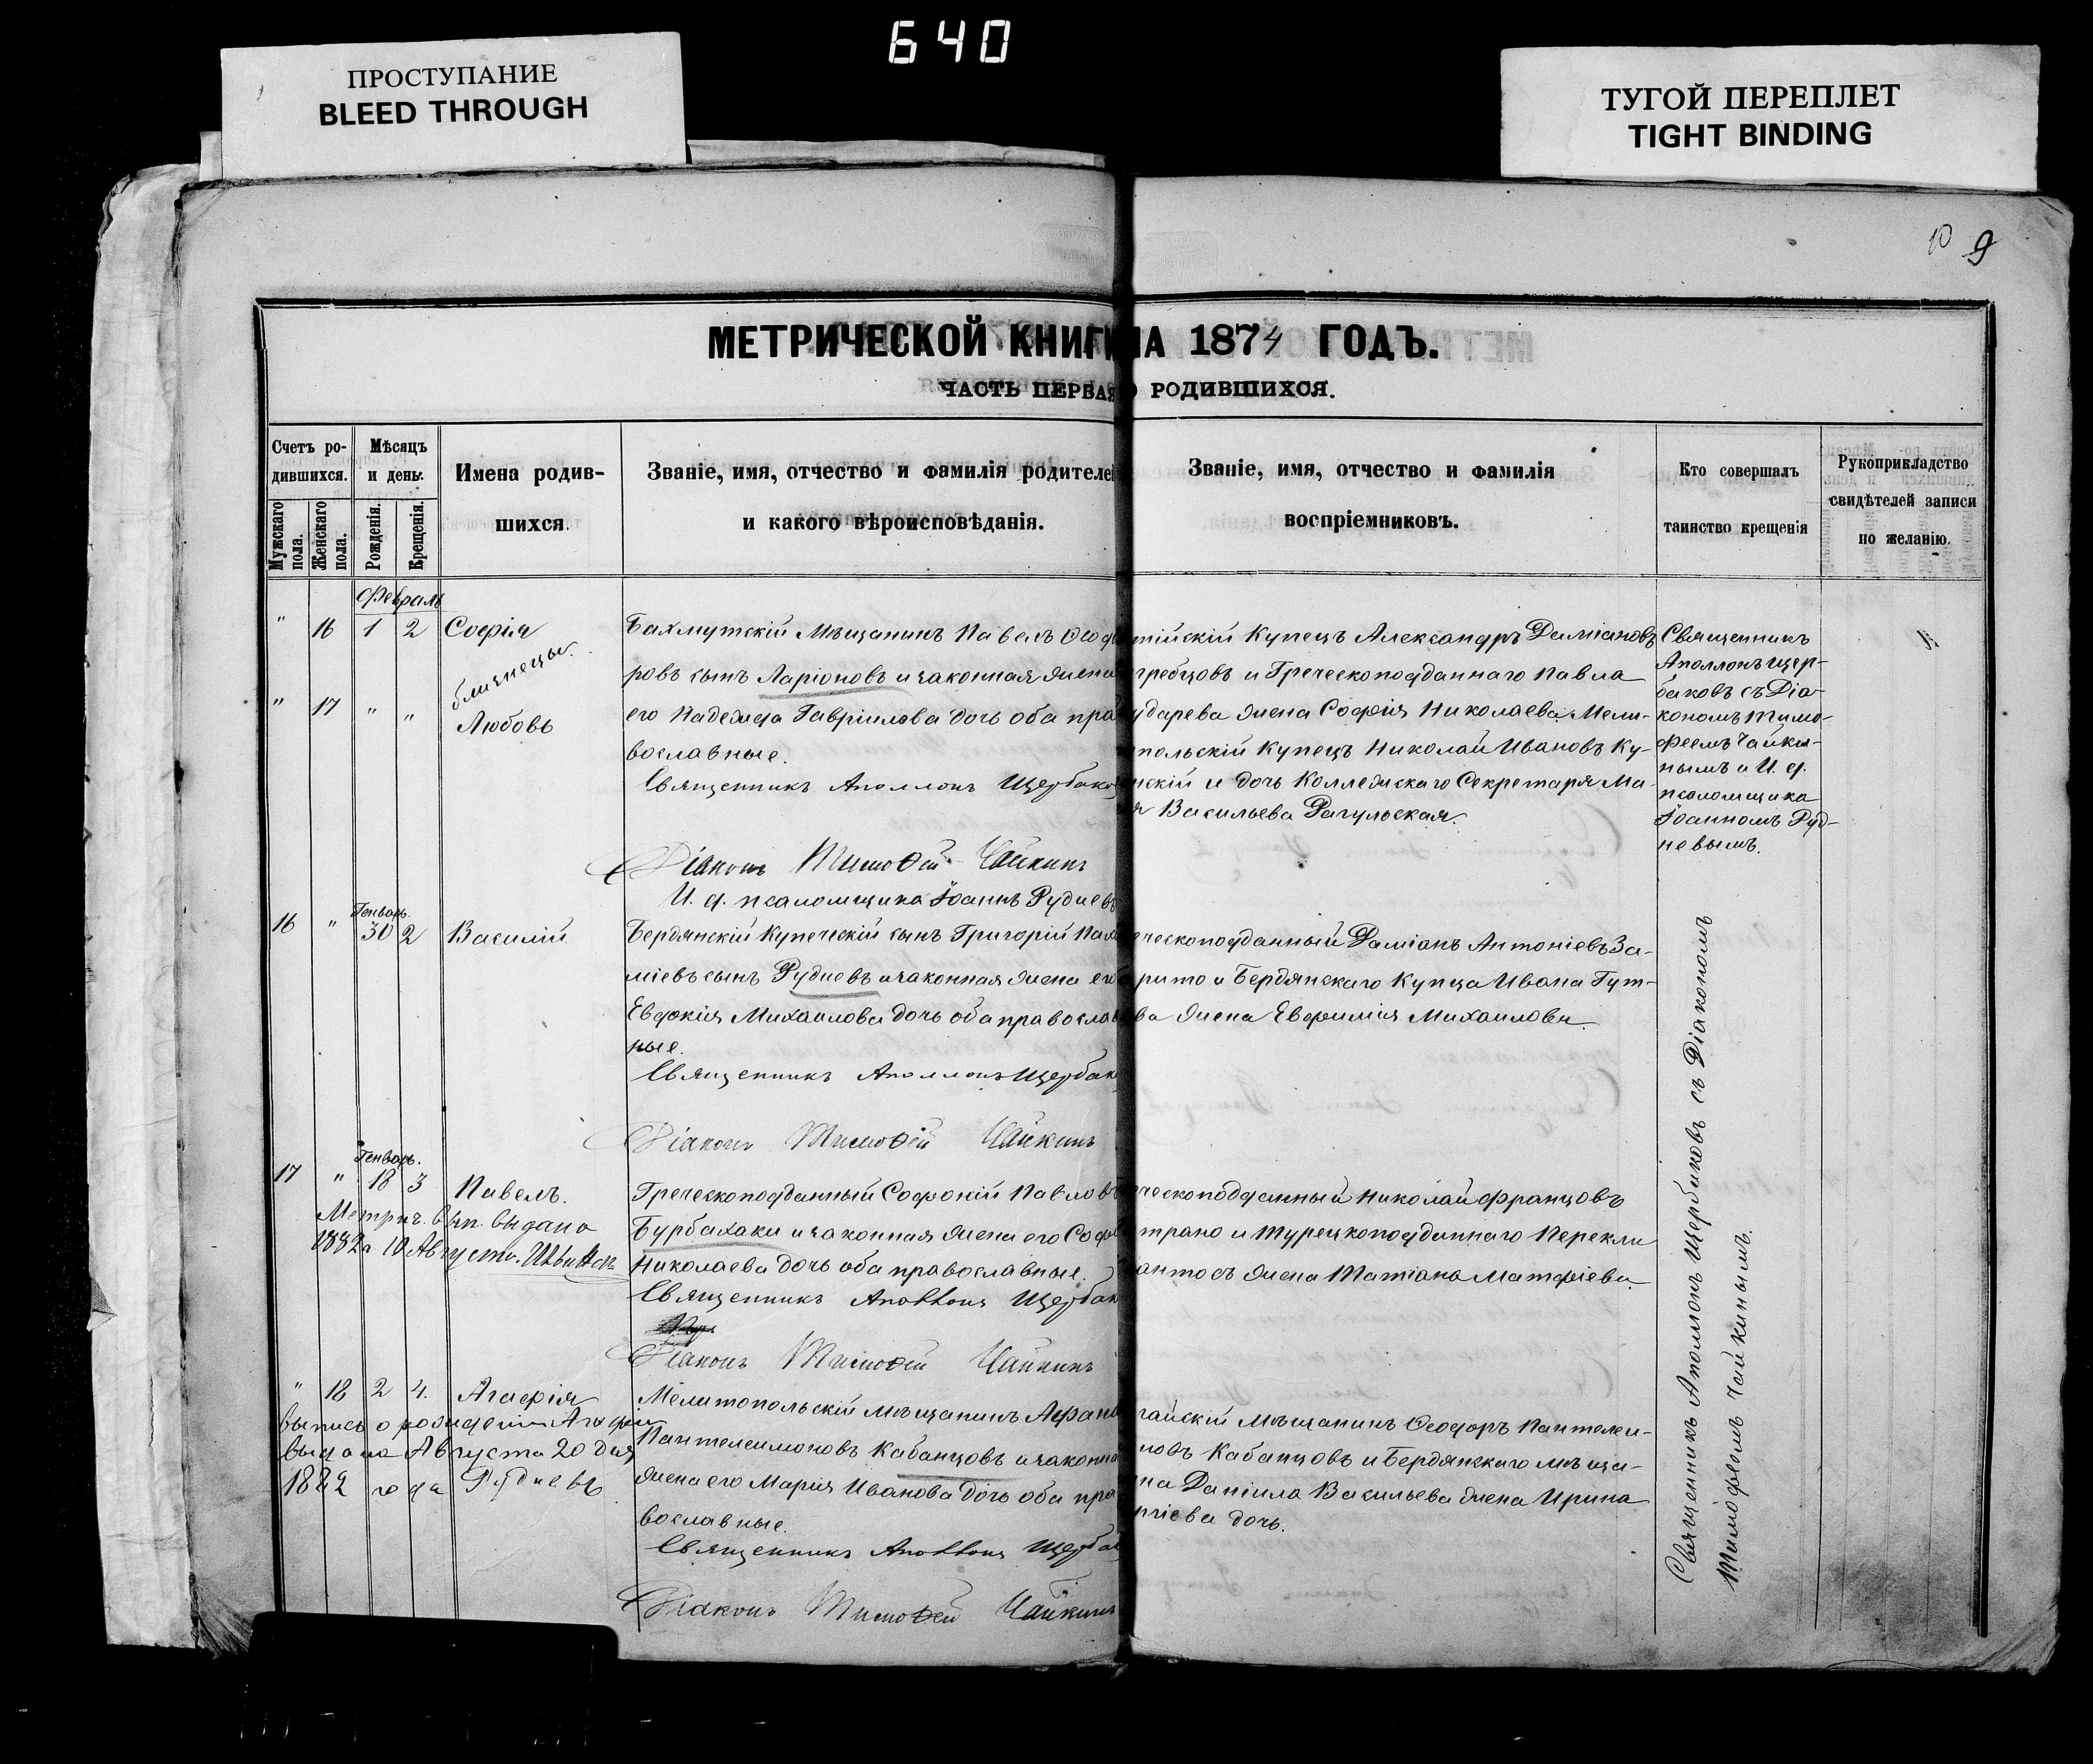 640
ПРОСТУПАНИЕ
BLEED THROUGH
ТУГОЙ ПЕРЕПЛЕТ
TIGHT BINDING
9
МЕТРИЧЕСКОЙ КНИГИ НА 1874 ГОДЪ.
ЧАСТЬ ПЕРВАЯ О РОДИВШИХСЯ.
Счетъ ро-
дившихся.
Мужскаго пола.
Женскаго пола.
Мѣсяцъ
и день.
Рожденія.
Крещенія.
Имена родив-
шихся.
Званіе, имя, отчество и фамилія родителей
и какого вѣроисповѣданія.
Званіе, имя, отчество и фамилія
воспріемниковъ.
Кто совершалъ
таинство крещенія
Рукоприкладство
свидѣтелей записи
по желанію.
Февраль
" 16 1 2 Софія
близнецы.
" 17 " " Любовь
Бахмутскій Мѣщанинъ Павелъ Ѳеодо
ровъ сынъ Ларіоновъ и законная жена
его Надежда Гавріилова дочь оба пра
вославные.
Священникъ Аполлонъ Щербаков
Діаконъ Тимоѳей Чайкинъ
И. д. псаломщика Іоаннъ Рудневъ
тійскій Купецъ Александръ Даміановъ
гребцовъ и Греческоподданнаго Павла
ударева жена Софія Николаева Мели-
польскій Купецъ Николай Ивановъ Ку-
нскій и дочь Коллежскаго Секретаря Ма-
я Васильева Рагульская.
Священникъ
Аполлонъ Щер-
баковъ съ Діа-
кономъ Тимо-
феемъ Чайки-
нымъ и И. д.
псаломщика
Іоанномъ Руд-
невымъ.
Генварь.
16 " 30 2 Василій
Бердянскій Купеческій сынъ Григорій Пахо
міевъ сынъ Рудневъ и законная жена его
Евдокія Михаилова дочь оба православ
ные.
Священникъ Аполлонъ Щербак
Діаконъ Тимоѳей Чайкинъ
ческоподданный Даміанъ Антоніевъ За-
рито и Бердянскаго Купца Ивана Гут-
ва жена Евфимія Михаилова.
Генварь.
17 " 18 3 Павелъ.
Метрич. вып. выдана
1882 г. 10 Августа.
Греческоподданный Софокій Павловъ
Бурбахаки и законная жена его Софі
Николаева дочь оба православные.
Священникъ Аполлонъ Щербак
Діаконъ Тимоѳей Чайкинъ
ческоподданный Николай Францовъ
трано и Турецкоподданнаго Перекли
антосъ жена Татіана Матфіева
" 18 2 4. Агафія
выпись о рожденіи Агафіи
выдана Августа 20 дня
1882 года Рудневъ
Мелитопольскій Мѣщанинъ Афана
Пантелеимоновъ Кабанцовъ и законна
жена его Марія Иванова дочь оба пра
вославные.
Священникъ Аполлонъ Щербак
Діаконъ Тимоѳей Чайкинъ
гайскій Мѣщанинъ Ѳеодоръ Пантелеи-
новъ Кабанцовъ и Бердянскаго мѣща-
на Даніила Васильева жена Ирина
гіева дочь.
Священникъ Аполлонъ Щербаковъ съ Діакономъ
Тимофеемъ Чайкинымъ.